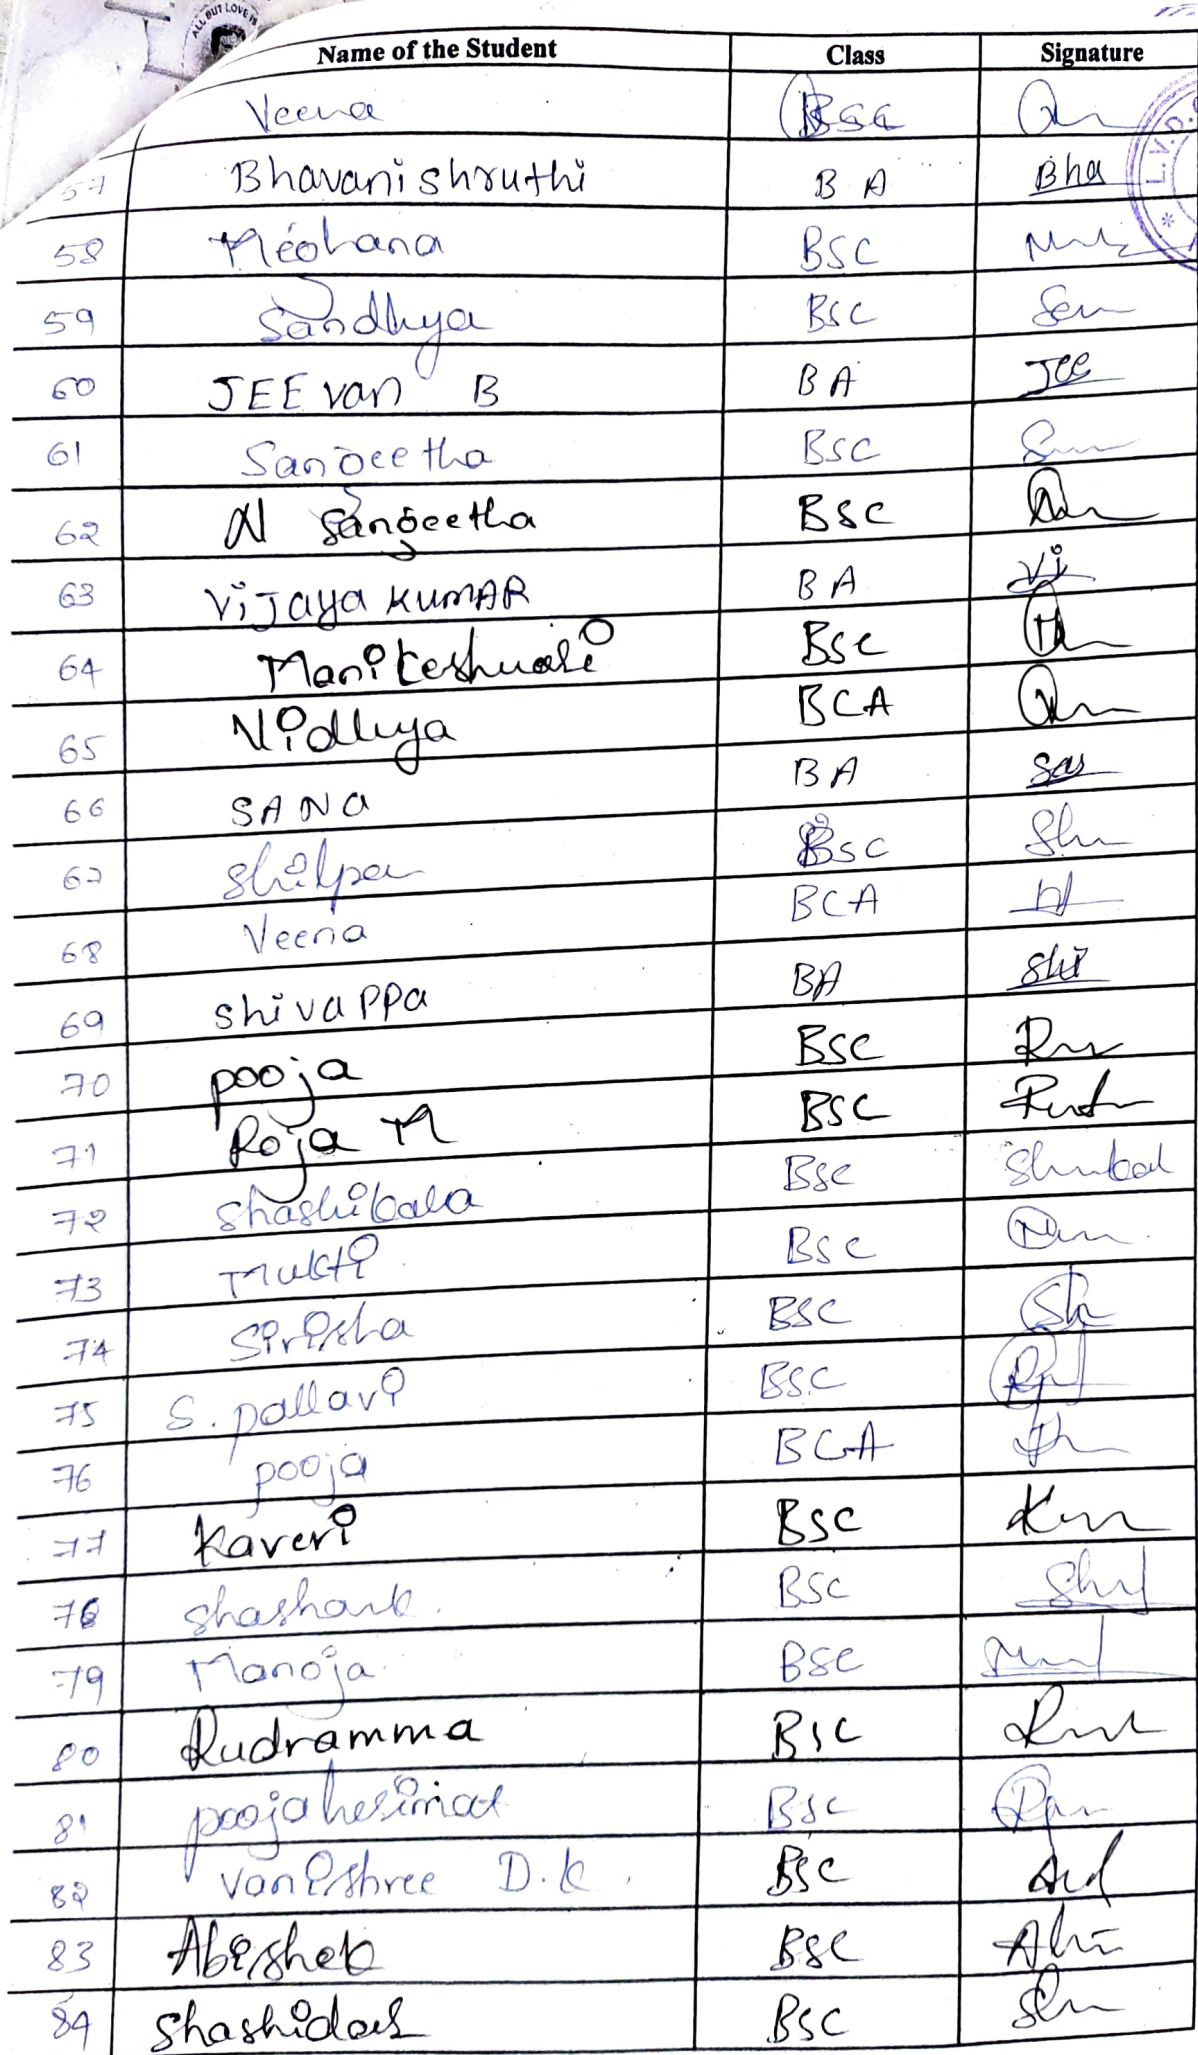 ALL BUT LOVE IS
Name of the Student Class Signature
Veena BSC
57 Bhavani shruthi B A Bha
58 Meghana BSC
59 Sandhya BSC San
60 JEEvan B B A Jee
61 Sangeetha BSC
62 N Sangeetha BSC
63 ViJaya KUMAR B A Vi
64 BSC
65 Nidhya BCA
66 SANa B A Sa
67 Shilpa BSC Sh
68 Veena BCA
69 shivaPPa BA Shi
70 pooja BSC
71 Roja M BSC
72 Shashikala BSC
73 Mukti BSC
74 Sirisha BSC Sh
75 S. pallavi BSC
76 pooja BCA
77 Kaveri BSC
78 Shashank BSC
79 Manoja BSC
80 Rudramma BSC
81 pooja BSC
82 Vanishree D.K. BSC
83 Abishek BSC Abi
84 Shashidar BSC
L.V.D.